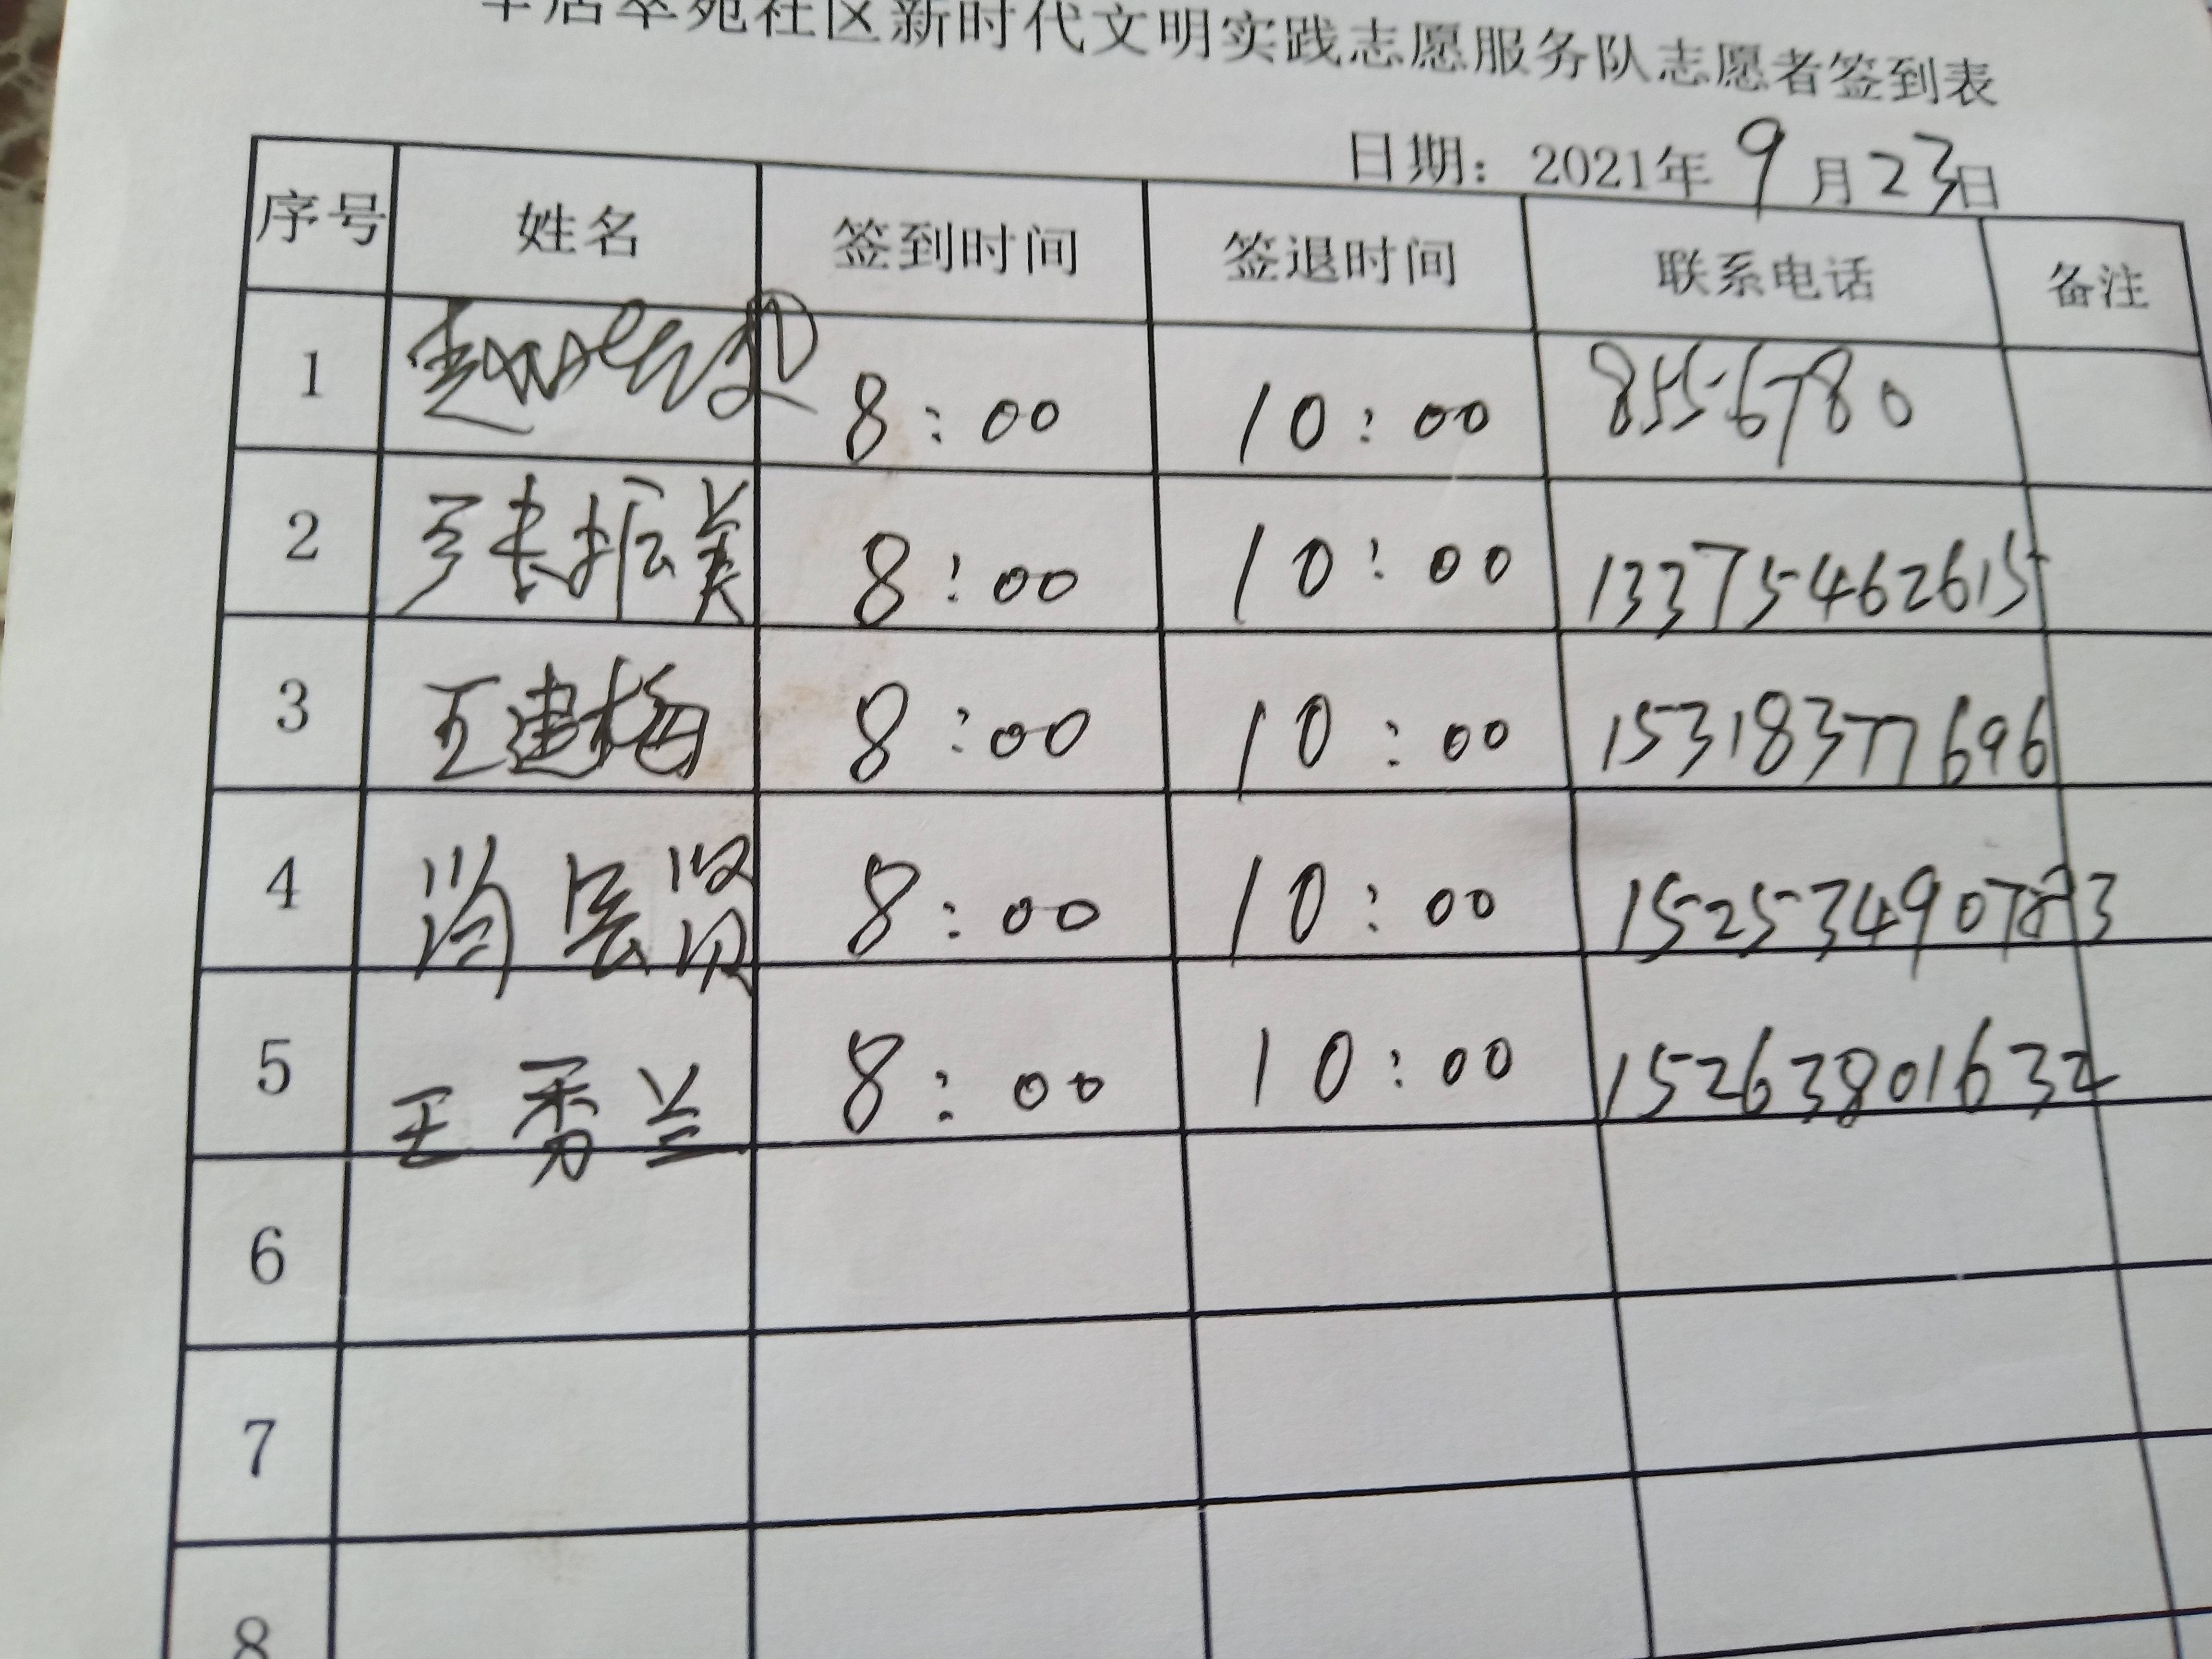 辛店翠苑社区新时代文明实践志愿服务队志愿者签到表
日期：2021年9月23日
序号 姓名 签到时间 签退时间 联系电话 备注
1 8:00 10:00 8556780
2 张振美 8:00 10:00 13375462615
3 王建梅 8:00 10:00 15318377696
4 8:00 10:00
5 王秀兰 8:00 10:00 15263801632
6
7
8